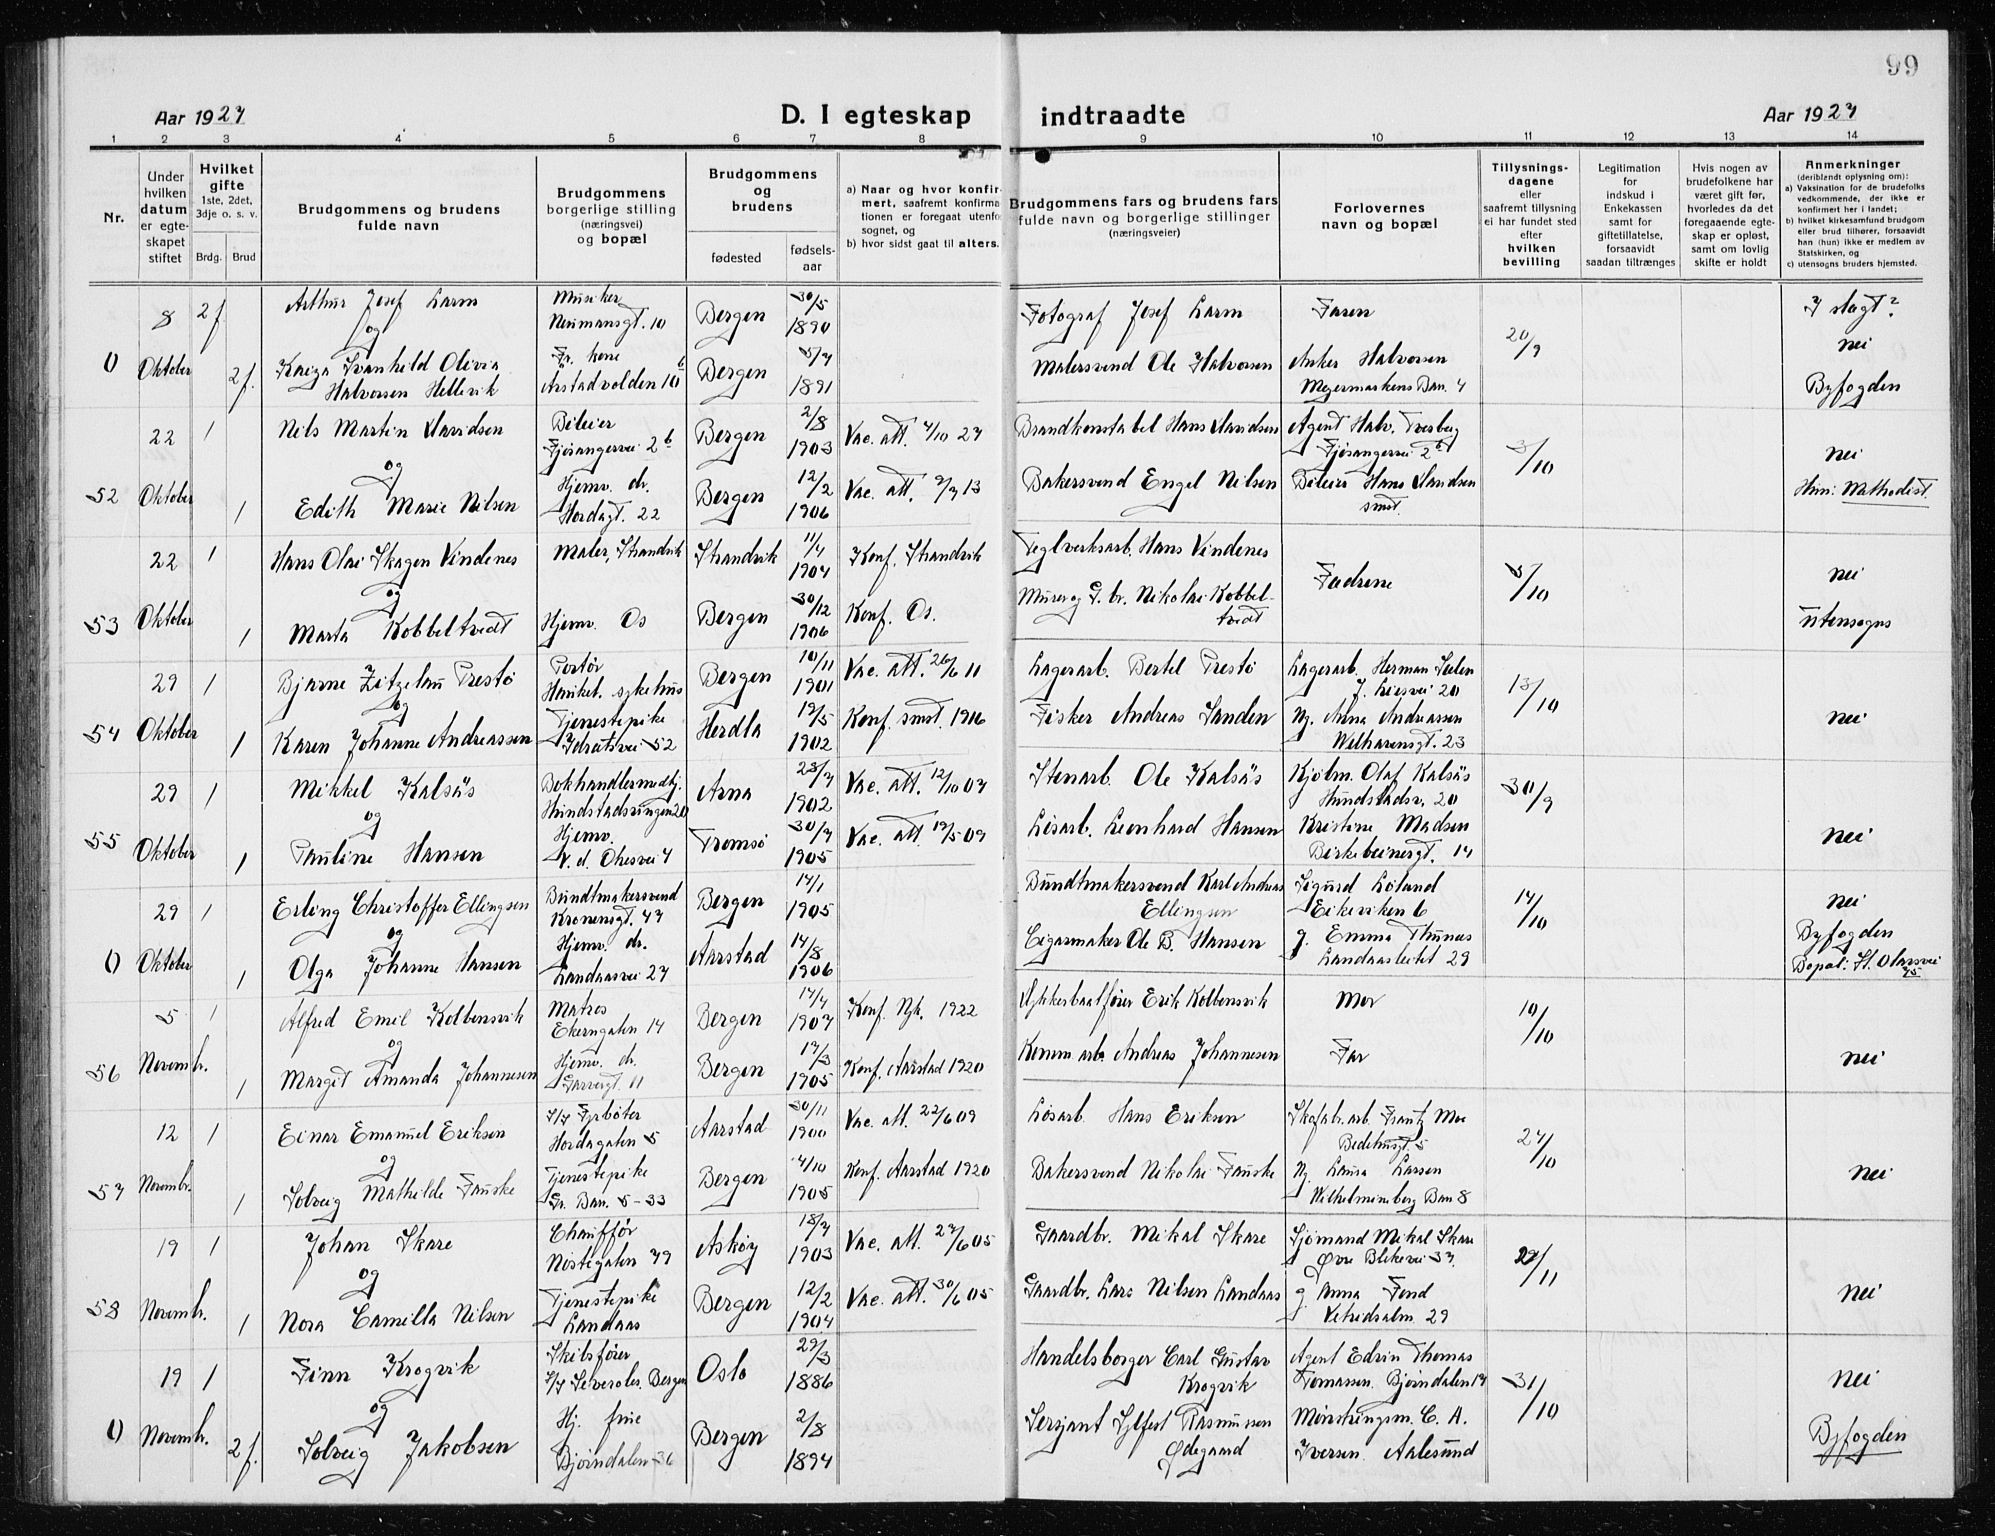 99
Aar 1927
D. I egteskap indtraadte
Aar 1927
1 2 3 4 5 6 7 8 9 10 11 12 13 14
Nr.
Under hvilken datum er egteskapet stiftet
Hvilket gifte 1ste, 2det, 3dje o. s. v.
Brdg. Brud
Brudgommens og brudens fulde navn
Brudgommens borgerlige stilling (næringsvei) og bopæl
Brudgommens og brudens
fødested
fødsels-aar
a) Naar og hvor konfirmert, saafremt konfirmationen er foregaat utenfor sognet, og
b) hvor sidst gaat til alters.
Brudgommens fars og brudens fars fulde navn og borgerlige stillinger (næringsveier)
Forlovernes navn og bopæl
Tillysningsdagene eller saafremt tillysning ei har fundet sted efter hvilken bevilling
Legitimation for indskud i Enkekassen samt for giftetillatelse, forsaavidt saadan tiltrænges
Hvis nogen av brudefolkene har været gift før, hvorledes da det foregaaende egteskap er opløst, samt om lovlig skifte er holdt
Anmerkninger (deriblandt oplysning om):
a) Vaksination for de brudefolks vedkommende, der ikke er konfirmert her i landet;
b) hvilket kirkesamfund brudgom eller brud tilhører, forsaavidt han (hun) ikke er medlem av Statskirken, og
c) utensogns bruders hjemsted.
0 8 Oktober 2f Arthur Josef Larm Musiker Neumansgt. 10 Bergen 30/5 1890 Fotograf Josef Larm Faren 20/9 I slagt? nei
og
2f. Kaiza Svanhild Olivia Halvorsen Hellevik Fr. kone Årstadvolden 10b Bergen 5/7 1891 Malersvend Ole Halvorsen Anker Halvorsen Meyermarkens Ban. 4 Byfogden
52 22 Oktober 1 Nils Martin Davidsen Bileier Fjøsangervei 2b Bergen 2/8 1903 Vac. att. 7/10 27 Brandkonstabel Hans Davidsen Agent Halv. Tverberg Fjøsangervei 2b 3/10 nei
og
1 Edith Marie Nilsen Hjemv. dr. Hordagt. 22 Bergen 12/2 1906 Vac. att. 9/7 13 Bakersvend Engel Nilsen Bileier Hans Davidsen smst. Hun: Methodist.
53 22 Oktober 1 Hans Olai Skagen Vindenes Maler, Strandvik Strandvik 11/7 1904 Konf. Strandvik Teglverksarb. Hans Vindenes Fædrene 5/10 nei
og
1 Marta Kobbeltvedt Hjemv. Os Bergen 30/12 1906 Konf. Os. Murer og G. br. Nikolai Kobbeltvedt utensogns
54 29 Oktober 1 Bjarne Zitzelau Trestø Portør Haukel. sykehus Bergen 10/11 1901 Vac. att. 26/6 11 Lagerarb. Bertel Trestø Lagerarb. Herman Selen J. Liesvei 20 13/10
og
1 Karen Johanne Andreassen Tjenestepike Idrætsvei 52 Herdla 19/5 1902 Konf. smst. 1916 Fisker Andreas Sanden Ug. Anna Andreassen Welhavensgt. 23 nei
55 29 Oktober 1 Mikkel Kalsås Bokhandlermedhj. Hundstadsvingen 20 Arna 23/7 1902 Vac. att. 12/10 07 Stenarb. Ole Kalsås Kjølm. Olaf Kalsås Hundstadsv. 20 30/9
og
1 Pauline Hansen Hjemv. V. d. Ohesvei 4 Tromsø 30/7 1905 Vac. att 19/5 09 Løsarb. Leonhard Hansen Kristine Madsen Birkebeinergt. 14 nei
0 29 Oktober 1 Erling Christoffer Ellingsen Bundtmakersvend Kronengt. 47 Bergen 14/1 1905 Bundtmakersvend Karl Andreas Ellingsen Sigurd Løland Eikeviken 6 14/10 nei
og
1 Olga Johanne Hansen Hjemv. dr. Landaasvei 27 Aarstad 14/8 1906 Cigarmaker Ole B. Hansen g. Emma Thunæs Landaasleitet 29 Byfogden Bopæl: St. Olavsvei 75
56 5 Novembr. 1 Alfred Emil Kolbensvik Matros Ekerngaten 14 Bergen 17/7 1907 Konf. Nyk. 1922 Dykkerbaatfører Erik Kolbensvik Mor 19/10
og
1 Margit Amanda Johannesen Hjemv. dr. Garvergt. 11 Bergen 17/3 1905 Konf. Aarstad 1920 Komm. arb. Andreas Johannesen Far nei
57 12 Novembr. 1 Einar Emanuel Eriksen Fyrbøter Hordagaten 5 Aarstad 30/11 1900 Vac. att. 22/6 09 Løsarb. Hans Eriksen Skofabr. arb. Frantz Moe Bedehusgt. 5 27/10
og
1 Solveig Mathilde Fauske Tjenestepike Gr. Ban. 5-33 Bergen 4/10 1905 Konf. Aarstad 1920 Bakersvend Nikolai Fauske Ug. Laura Larsen Wilhelmineborg Ban 8 nei
58 19 Novembr. 1 Johan Skare Chauffør Nøstegaten 79 Askøy 18/7 1903 Vac. att. 27/6 05 Gaardbr. Mikal Skare Sjømand Mikal Skare Øvre Blekevei 37. /11
og
1 Nora Camilla Nilsen Tjenestepike Landaas Bergen 12/2 1904 Vac. att. 30/6 05 Gaardbr. Lars Nilsen Landaas g. Anna Fond Vetridsalm. 29 nei
0 19 Novembr. 1 Finn Krogvik Skibsfører Bergen Oslo 29/3 1886 Handelsborger Carl Gustav Krogvik Agent Edvin Thomas Tomassen. Bjørndalen 19 31/10 nei
og
2f. Solveig Jakobsen Hj. frue Bjørndalen 36 Bergen 2/8 1894 Sersjant Sylfest Rasmussen Ødegaard Mønstringsm. C. A. Iversen Aalesund Byfogden